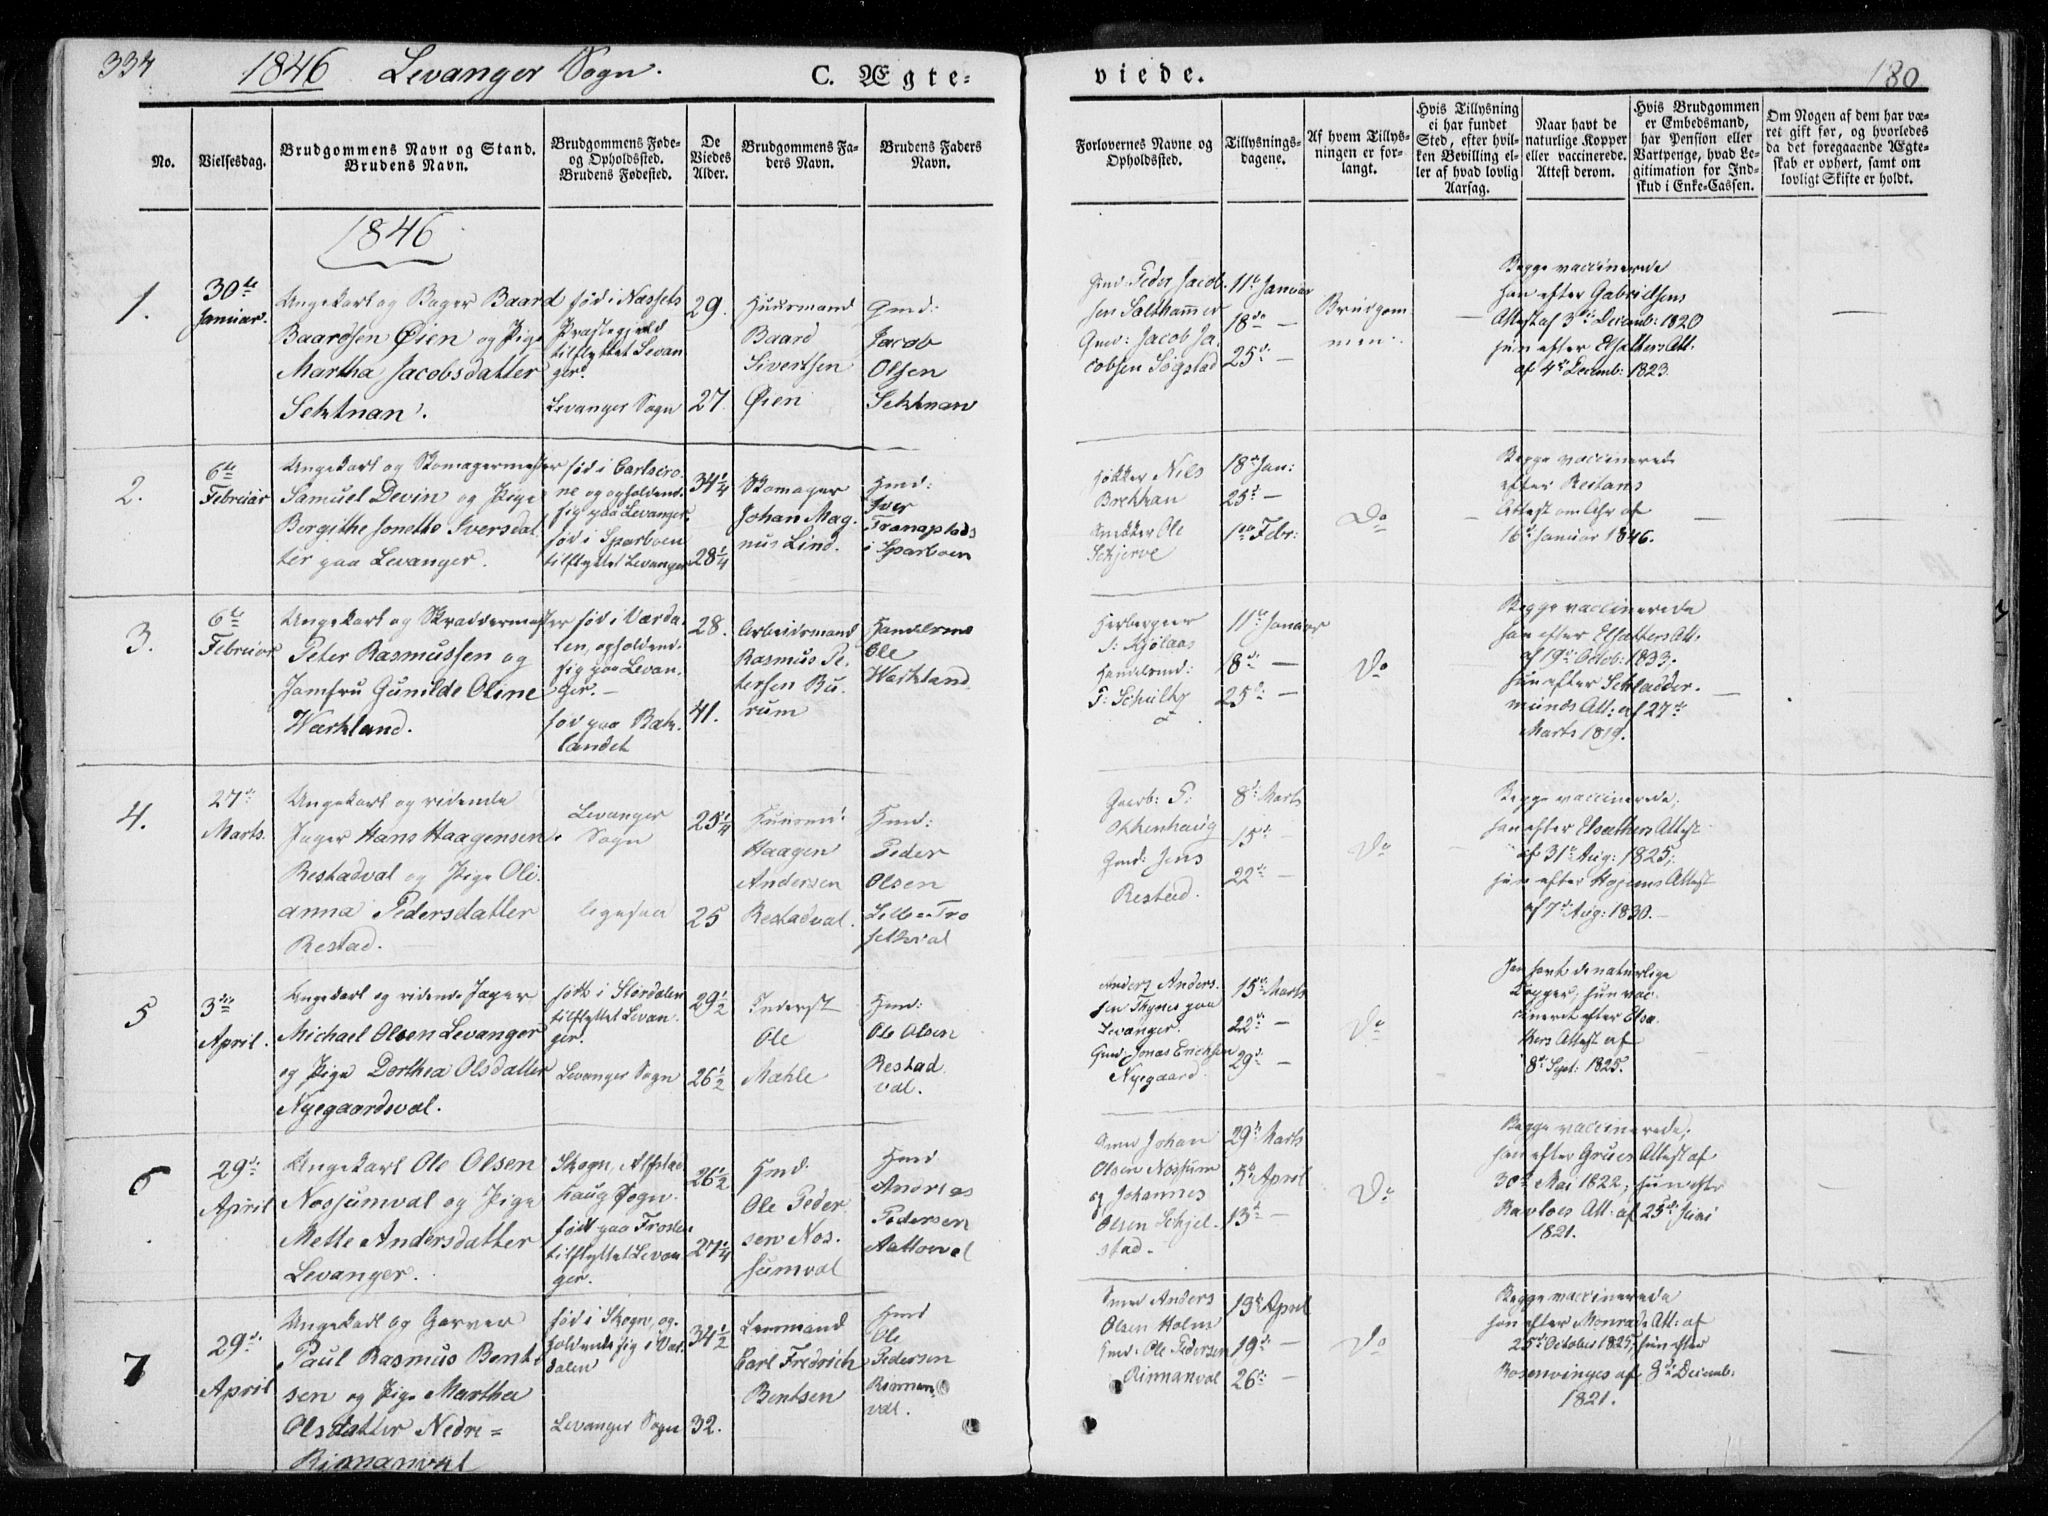 334
1846 Levanger Sogn.
C. Ægte=
viede.
180
No.
Vielsesdag.
Brudgommens Navn og Stand.
Brudens Navn.
Brudgommens Føde-
og Opholdssted.
Brudens Fødested.
De
Viedes
Alder.
Brudgommens Fa-
ders Navn.
Brudens Faders
Navn.
Forlovernes Navne og
Opholdssted.
Tillysnings-
dagene.
Af hvem Tillys-
ningen er for-
langt.
Hvis Tillysning
ei har fundet
Sted, efter hvil-
ken Bevilling el-
ler af hvad lovlig
Aarsag.
Naar havt de
naturlige Kopper
eller vaccinerede.
Attest derom.
Hvis Brudgommen
er Embedsmand,
har Pension eller
Vartpenge, hvad Le-
gitimation for Ind-
skud i Enke-Cassen.
Om Nogen af dem har væ-
ret gift før, og hvorledes
da det foregaaende Ægte-
skab er ophørt, samt om
lovligt Skifte er holdt.
1846
1.
30te
Januar.
Ungekarl og Bager Baard
Baardsen Øien og Pige
Martha Jacobsdatter
Sektnan.
fød i Næssets
Præstegjeld
tilflyttet Levan
ger.
Levanger Sogn
29.
27.
Huusmand
Baard
Sivertsen
Øien
Gmd:
Jacob
Olsen
Sektnan
Gmd Peder Jacob
sen Salthammer
Gmd: Jacob Ja
cobsen Sogstad
11te Januar
18de —
25de —
Brudgom
men.
—
Begge vaccinerede
han efter Gabrielsens
Attest af 3de Decemb: 1820
hun efter Elsathers Att:
af 4de Decemb: 1823.
—
2.
6te
Februar
Ungekarl og Skomagermester
Samuel Devin og Pige
Bergithe Jonette Iversdat
ter paa Levanger.
fød i Carlscro
ne og opholdend
sig paa Levanger.
fød i Sparboen
tilflyttet Levanger
34 1/4
28 1/4
Skomager
Johan Mag
nus Lind.
Hmd:
Iver
Tranaplads
i Sparboen
Høkker Nils
Brekkan
Snekker Ole
Schjerve
18de Jan:
25de —
1ste Febr:
Do
—
Begge vaccinerede
efter Restans
Attest om Ahr af
16de Januar 1846.
3.
6te
Februar
Ungekarl og Skræddermester
Peter Rasmussen og
Jomfru Gunilde Oline
Warkland.
fød i Værda
len, opholdend
sig paa Levan
ger.—
fød paa Bak
landet
28.
41.
Arbeidsmand
Rasmus Pe
tersen Bu
rum
Handelsmd
Ole
Warkland.
Herbergeer
Kjölaas
Handelsmd:
P: Schultz
11te Januar
18de —
25de —
Do
Begge vaccinerede
han efter Elsatters Att:
af 19de Octob: 1833.
hun efter Schladder
munds Att: af 27de
Marts 1819.
4.
27de
Marts.
Ungekarl og ridende
Jæger Hans Haagensen
Restadval og Pige Oli
anna Pedersdatter
Restad.
Levanger
Sogn
ligesaa
25 1/4
25
Huusmd:
Haagen
Andersen
Restadval.
Hmd:
Peder
Olsen
Lille=Tro
setheval
Gaarb: P:
Okkenhaug
Gmd: Jens
Restad.
8de Marts
15de —
22de —
Do
Begge vaccinerede,
han efter Elsathers Attest
af 31te Aug: 1825,
hun efter Hojems Attest
af 7de Aug: 1830.
5
3die
April.
Ungekarl og ridende Jæger
Michael Olsen Levanger
og Pige Dorthea Olsdatter
Nyegaardsval.
født i Størdalen
tilflyttet Levan
ger.
Levanger Sogn
29 1/2
26 1/2
Inderst
Ole
Mæhle
Hmd:
Ole Olsen
Restad
val.
Anders Anders
sen Thynes paa
Levanger.
Gmd Jonas Erichsen
Nyegaard.
15de Marts
22de —
29de —
Do
Han havt de naturlige
Kopper, hun vac
cinerede efter Elsa
thers Attest af
8de Sept: 1825.
6
29de
April
Ungekarl Ole Olsen
Nossumval og Pige
Mette Andersdatter
Levanger.
Skogn, Alstad
haug Sogn.
født paa Frosten
tilflyttet Levan
ger.
26 1/2
27 1/4
Hmd.
Ole Peder
sen Nos
sumval
Hmd
Andreas
Pedersen
Gmd Johan
Olsen Nossum
og Johannes
Olsen Schjel
stad.
29de Marts
5te April
13de —
Do
Begge vaccinerede,
han efter Grues Attest af
30te Mai 1822, hun efter
Ravloes Att: af 25de Juni
1821.
7
29de
April
Ungekarl og Garver
Paul Rasmus Bent
sen og Pige Martha
Olsdatter Nedre=
Rinnanval
fød i Skogn, op
holdende sig i Vær
dalen
Levanger Sogn
34 1/2
32.
Lensmand
Carl Fredrich
Bentsen
Hmd
Ole
Pedersen
Rinnan
val.
Smed Anders
Olsen Holm
Hmd. Ole Pedersen
Rinnanval
13de April
19de —
26de —
Do
Begge vaccinerede
han efter Monrads Att: af
25de October 1825, hun efter
Rosenvinges af 3de Decemb:
1821.